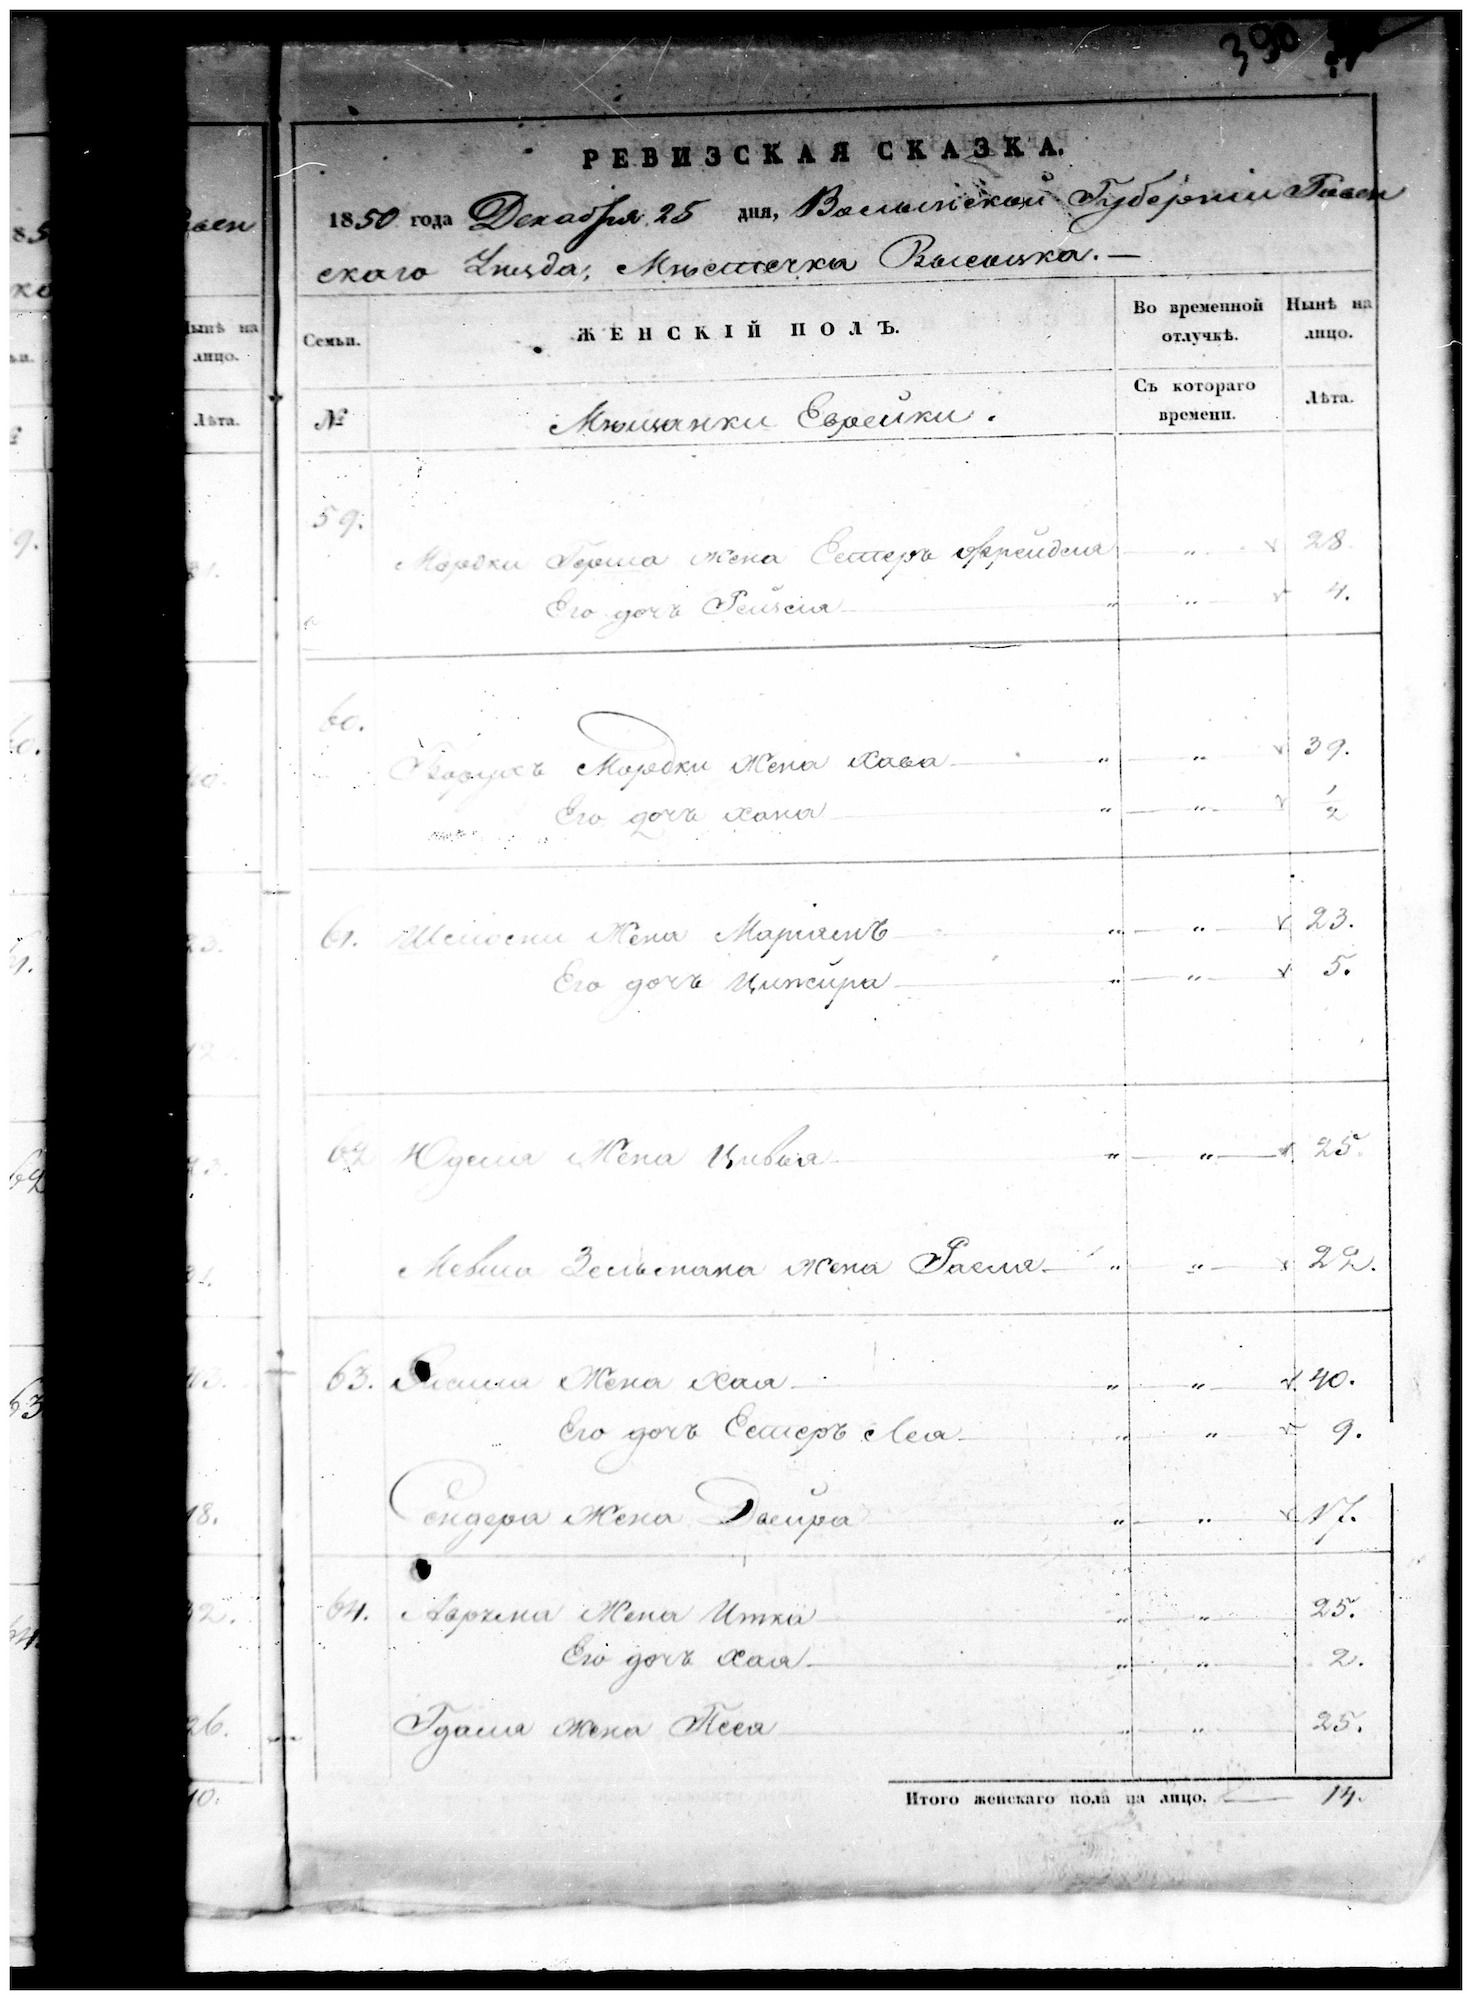 390
РЕВИЗСКАЯ СКАЗКА.
1850 года Декабря 25 дня, Волынской Губерніи Ровен
скаго Уѣзда, Мѣстечка Высоцка. —
Семьи. ЖЕНСКІЙ ПОЛЪ. Во временной отлучкѣ. Нынѣ на лицо.
№ Мѣщанки Еврейки. Съ котораго времени. Лѣта.
59.
Мордки Герша жена Естеръ Фрейдля " 28.
Его дочь Рейзля " " 4.
60.
Борухъ Мордки жена Хава " " 39.
Его дочь Хана " " 1/2
61. Шліомы жена Маріямъ " " 23.
Его дочь Ципойра " " 5.
62 Юделя жена Цивья " " 25.
Мевша Зельмана жена Раеля " " 22.
63. жена Хая " " 40.
Его дочь Естеръ Лея " " 9.
Сендера жена Двейра " " 17.
64. Аврума жена Итка " " 25.
Его дочь Хая " " 2.
Гдаля жена Песя " " 25.
Итого женскаго пола на лицо. — 14.